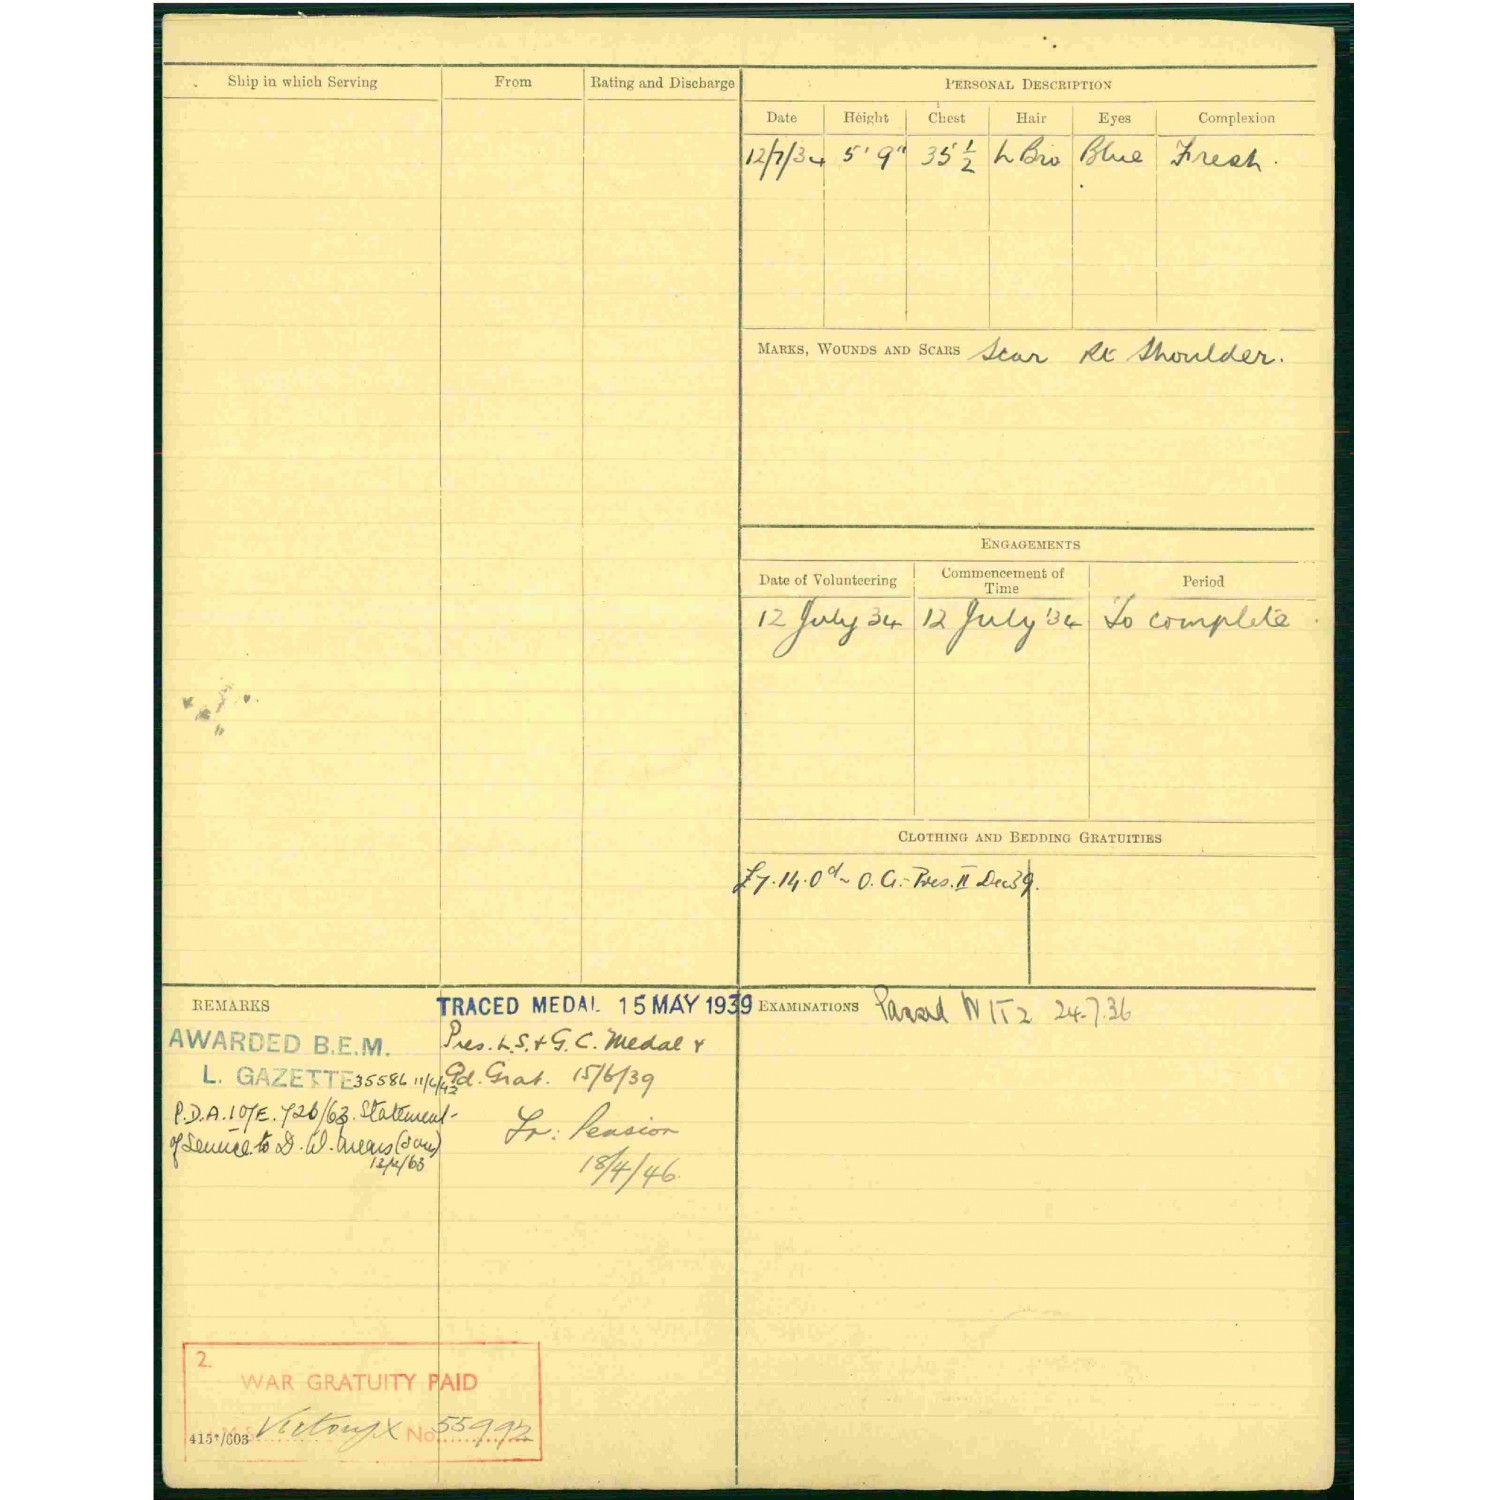 Ship in which Serving From Rating and Discharge
PERSONAL DESCRIPTION
Date Height Chest Hair Eyes Complexion
12/7/34 5' 9" 35 ½ L Bro Blue Fresh.
MARKS, WOUNDS AND SCARS Scar Rt Shoulder.
ENGAGEMENTS
Date of Volunteering Commencement of Time Period
12 July 34 12 July '34 To complete
CLOTHING AND BEDDING GRATUITIES
£7.14.0d - O.A. - Pres. II Dec 39.
REMARKS
TRACED MEDAL 15 MAY 1939
AWARDED B.E.M.
L. GAZETTE 35586 11/6/42
P.D.A. 107E. 726/63. Statement
of Service to D. W.
13/2/63
Pres. L.S. & G.C. Medal &
Gd. Grat. 15/6/39
To: Pension
18/4/46
EXAMINATIONS Passed 24.7.36
2.
WAR GRATUITY PAID
Victory X No. 55992
415*/603